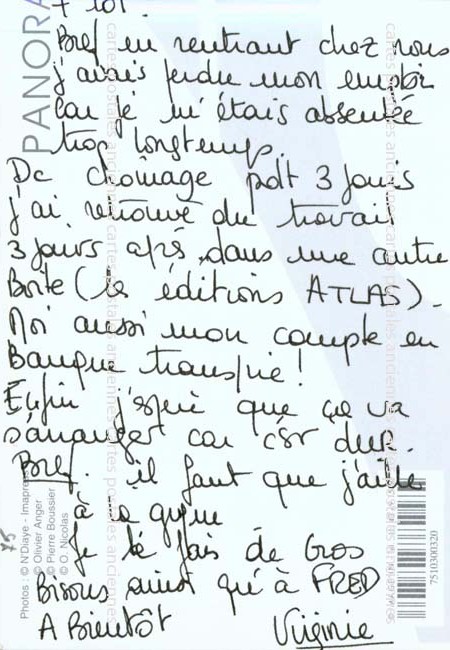 + tôt.
Bref en rentrant chez nous
j'avais perdu mon emploi
car je m'étais absentée
trop longtemps.
De chômage pdt 3 jours
j'ai retrouvé du travail
3 jours après dans une autre
Boite (les éditions ATLAS).
Moi aussi mon compte en
Banque transpire!
Enfin j'espère que ça va
s'arranger car c'est dur.
Bref. il faut que j'aille
à la gym
Je te fais de Gros
Bisous ainsi qu'à FRED
A Bientôt Virginie
PANORA
Photos : © N'Diaye - Imapress
© Olivier Anger
© Pierre Boussier
© O. Nicolas
75
7510300320
cartes postales anciennes